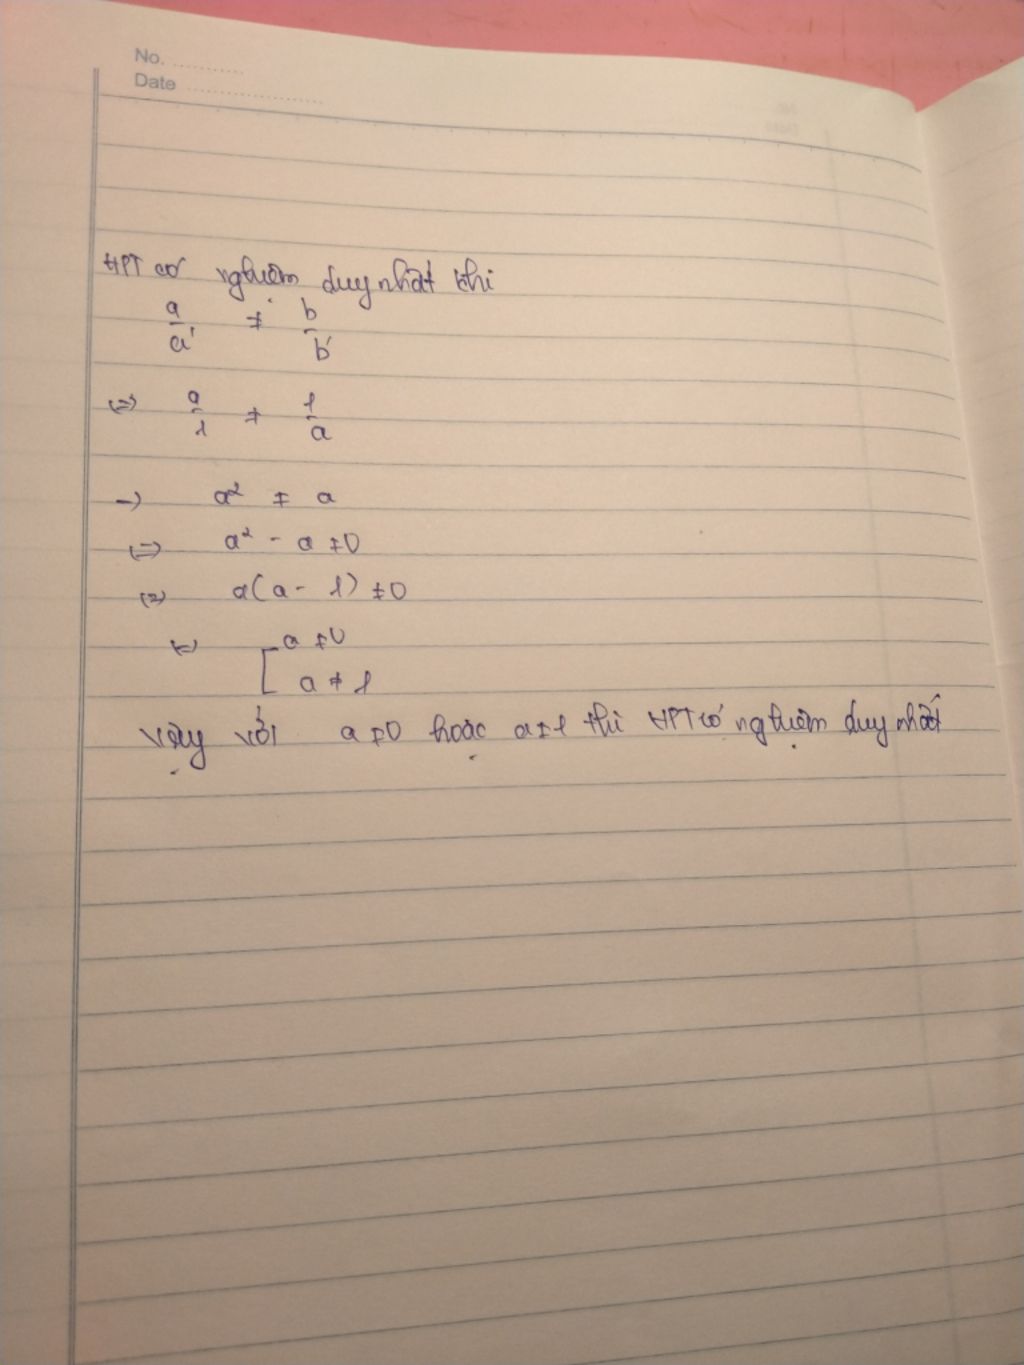 No. ...........
Date ......................
HPT có nghiệm duy nhất khi
a/a' ≠ b/b'
(=) a/1 ≠ 1/a
-) a² ≠ a
(=) a² - a ≠ 0
(=) a(a - 1) ≠ 0
(=) [ a ≠ 0
a ≠ 1
Vậy với a ≠ 0 hoặc a ≠ 1 thì HPT có nghiệm duy nhất